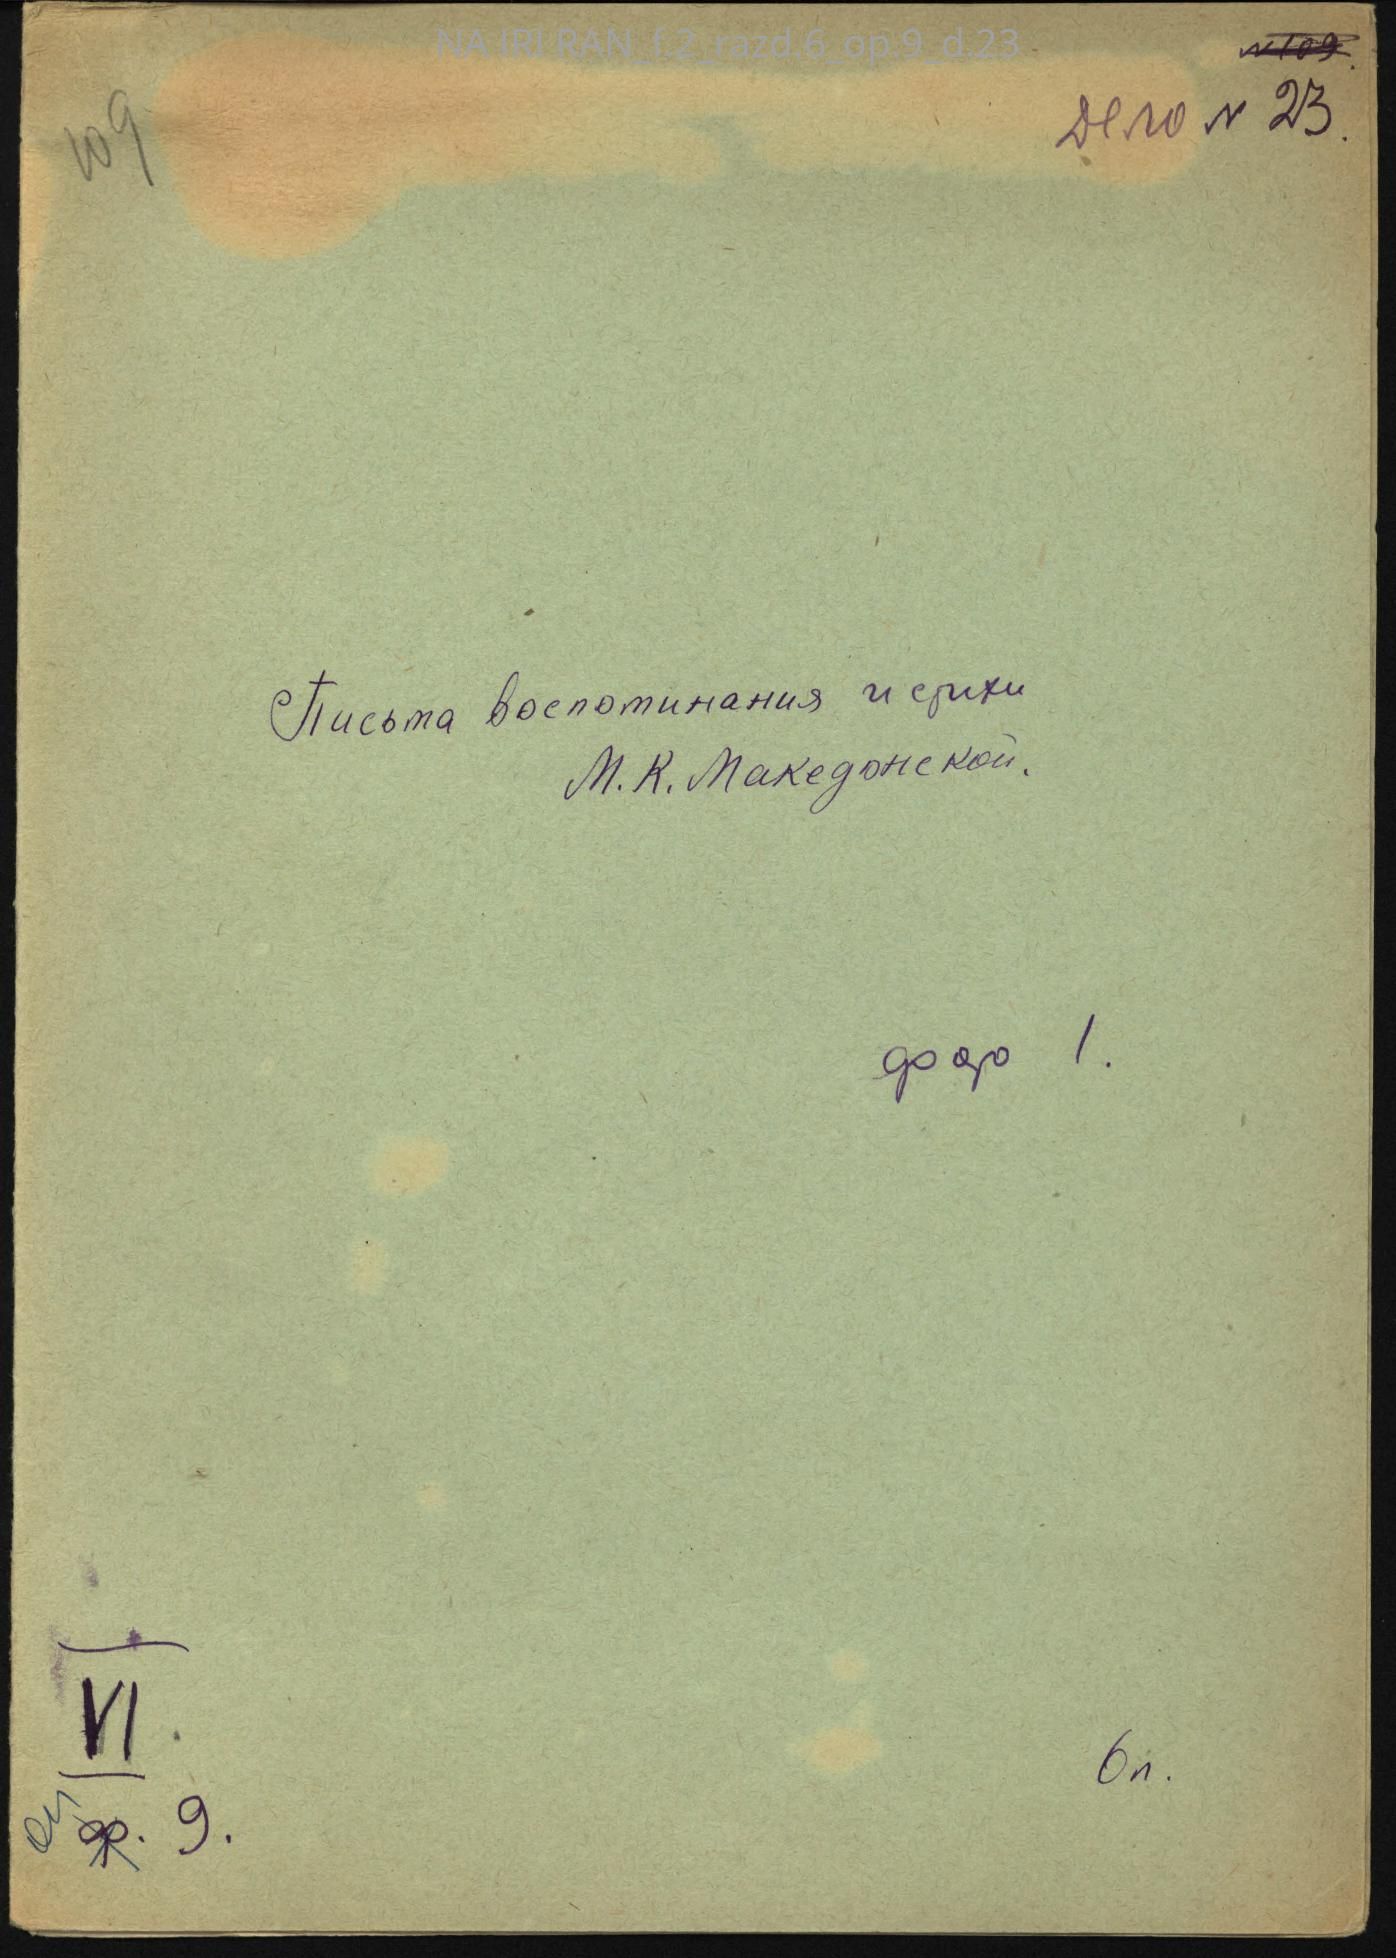 NA IRI RAN_f.2_razd.6_op.9_d.23
№ 109.
109
Дело № 23.
Письма воспоминания и стихи
М. К. Македонской.
фото 1.
VI
оп ф. 9.
6 л.